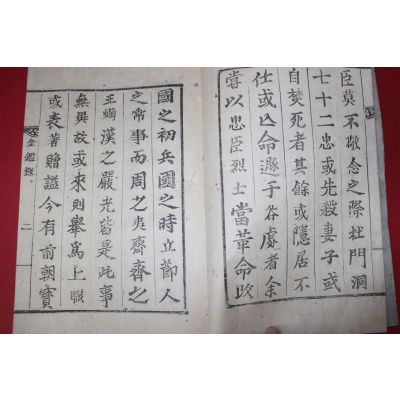 臣莫不敬念之際杜門洞
七十二忠或先殺妻子或
自焚死者其餘或隱居不
仕或亡命遯于各處者余
嘗以忠臣烈士當革命改
國之初兵國之時立節人
之常事而周之夷齊齊之
王蠋漢之嚴光皆是此事
無異故或來則舉爲上職
或表著贈謚今有前朝寶
金鑑錄
二